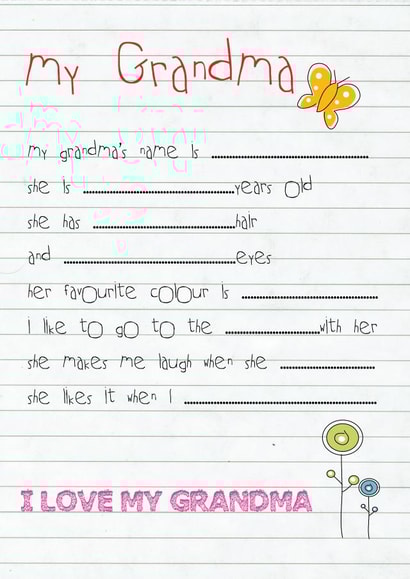 my Grandma
my grandma's name is ..............................
she is ..............................years old
she has ..............................hair
and ..............................eyes
her favourite colour is ..............................
i like to go to the ....................with her
she makes me laugh when she ....................
she likes it when I ..............................
I LOVE MY GRANDMA